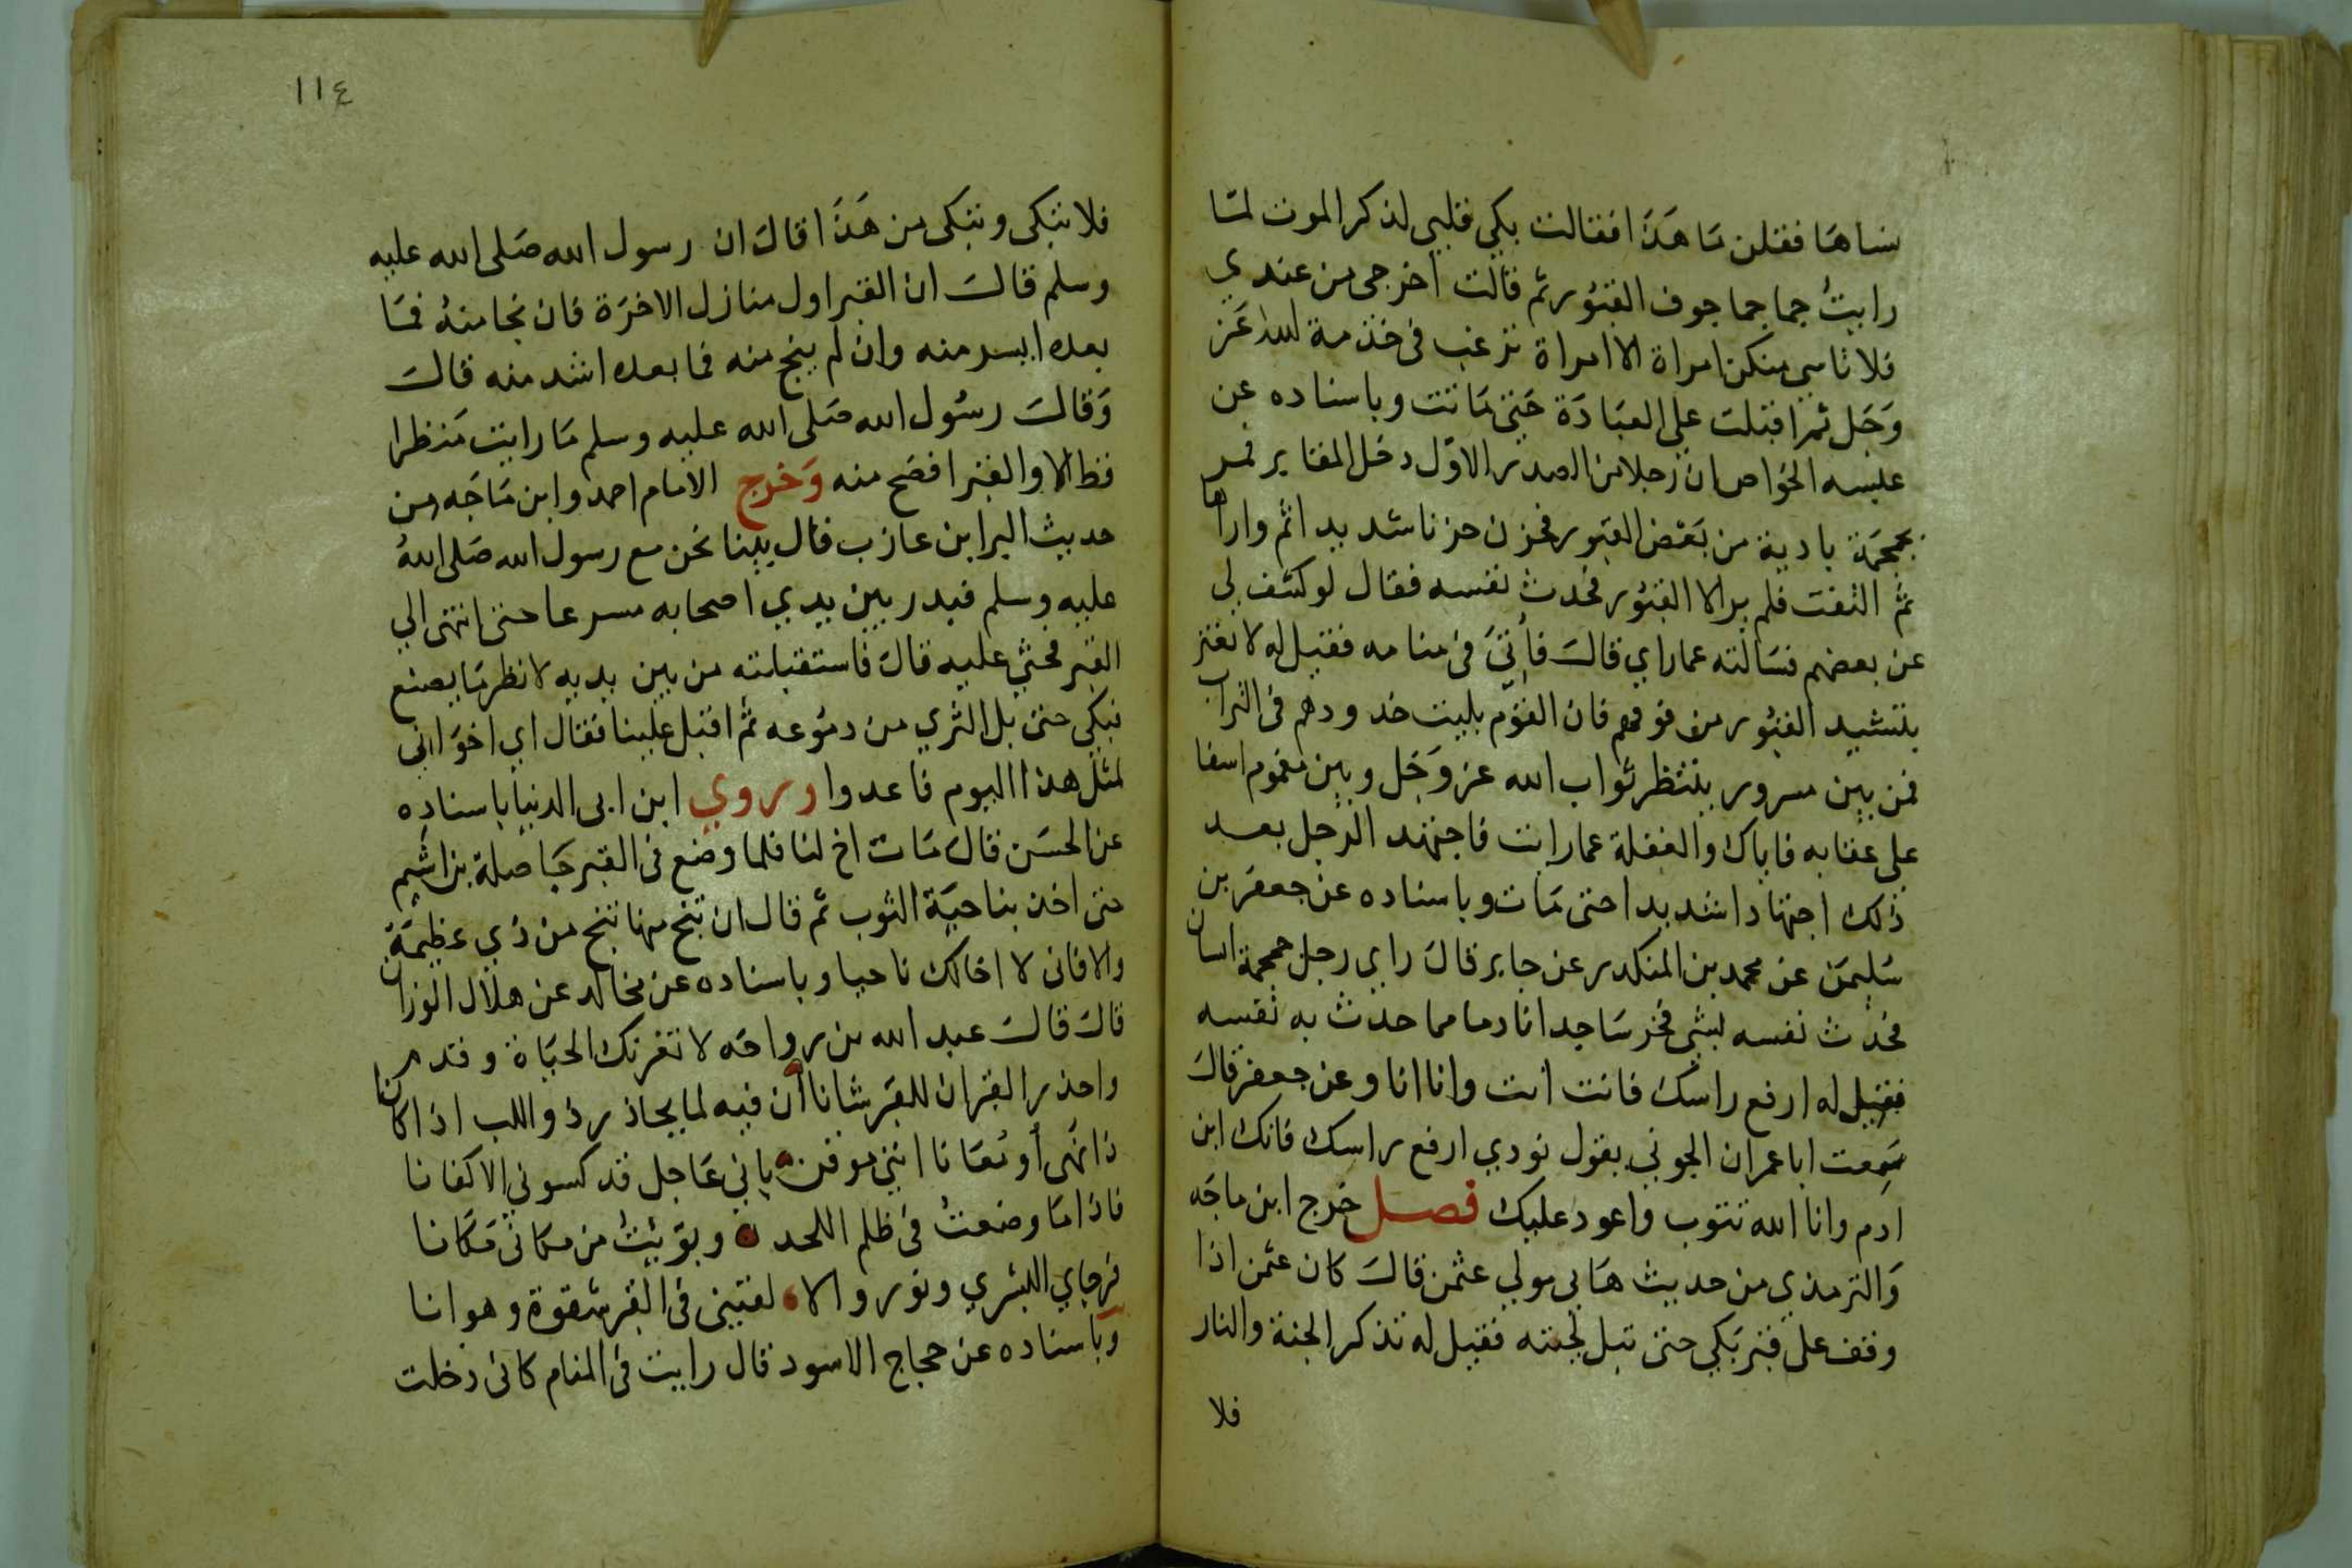 نساها فقلن ما هذا فقالت بكي قلبي لذكر الموت لمّا
رايتُ جماجما جوف القبُور ثم قالت اخرجي من عندي
فلا تاسي منكن امراة الا امراة ترغب في خذمة الله عَز
وَجَل ثم اقبلت علي العبَادَة حَتى مَاتت وباسناده عن
عليسه الخوَاص ان رَجلا من الصدر الاوّل دخل المقابر فمر
بجمجمَة بادية من بَعض القبور فحزن حزنا شديدا ثم واراها
ثم التفت فلم ير الا القبُور فحدث نفسه فقال لو كشف لي
عن بعضهم فسَالته عما راي قالَ فاُتيَ في منامه فقيل له لا تغتر
بتشييد القبُور من فوقهم فان القوْم بليت خدودهم في التراب
فمن بين مسرور ينتظر ثواب الله عز وَجَل وبين مغموم اسفا
على عقابه فاياك والغفلة عما رايت فاجتهد الرجل بعد
ذلك اجتهادا شديدا حتى مَات وباسناده عن جعفر بن
سُليمَن عن محمد بن المنكدر عن جابر قالَ راي رجل جمجمة انسان
فحدث نفسه بشي فخر سَاجدا نادما مما حدث به نفسه
فقيل له ارفع راسك فانت انت وانا انا وعن جعفر قالَ
سَمِعت ابا عمران الجوني يقول نودي ارفع راسك فانك ابن
ادم وانا الله تتوب واعود عليك فصل خرج ابن ماجَه
وَالترمذي من حديث هَاني مولي عثمن قالَ كان عثمن اذا
وقف على قبر بَكي حتى تبل لحيته فقيل له تذكر الجنة والنار
فلا
١١٤
فلا تبكى وتبكى من هَذَا قالَ ان رسول الله صَلى الله عليه
وسلم قالَ ان القبر اول منازل الاخرَة فان نجا منهُ فمَا
بعده ايسر منه وان لم ينج منه فما بعده اشد منه قالَ
وَقالَ رسُول الله صَلى الله عليه وسلم مَا رايت مَنظرا
قط الا والقبر افضح منه وَخرج الامام احمد وابن مَاجَه من
حديث البرا بن عازب قال بينا نحن مع رسول الله صَلى اللهُ
عليه وسلم فيدر بين يدي اصحابه مسرعا حتى انتهى الي
القبر فجثي عليه قالَ فاستقبلته من بين يديه لانظر مَا يصنع
فبكى حتى بل الثري من دمُوعه ثم اقبل علينا فقال اي اخوَاني
لمثل هذا اليوم فاعدوا وروي ابن ابى الدنيا باسناده
عن الحسَن قال مَات اخ لنا فلما وضع في القبر جَا صلة بن اشيم
حتى اخذ بناحيَة الثوب ثم قال ان تنج منها تنج من ذي عظيمَة
والا فانى لا اخالك ناجيا وباسناده عن مخالد عن هلال الوزان
قالَ قالَ عبد الله بن رواحَه لا تغرنك الحيَاة وقدم
واحذر القبر ان للقبر شانا ان فيه لما يحاذر ذو اللب اذا كانا
ذا نهَى او مُعَانا انني موقن باني عَاجل قد كسوني الاكفانا
فاذا مَا وضعتُ في ظلم اللحد وبوّيتُ من مكاني مَكَانا
فرجاي البشري ونور والا لقتيني في القبر شقوة وهوانا
وباسناده عن حجاج الاسود قال رايت في المنام كاني دخلت